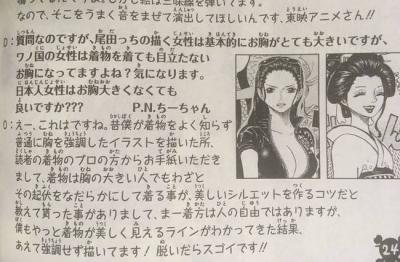 なので、そこをうまく音をまぜて演出してほしいんです、東映アニメさん!!
D：質問なのですが、尾田っちの描く女性は基本的にお胸がとても大きいですが、
ワノ国の女性は着物を着ても目立たない
お胸になってますよね？気になります。
日本人女性はお胸大きくなくても
良いですか??? P.N.ちーちゃん
O：えー、これはですね。昔僕が着物をよく知らず
普通に胸を強調したイラストを描いた所、
読者の着物のプロの方からお手紙いただき
まして、着物は胸の大きい人でもわざと
その起伏をなだらかにして着る事が、美しいシルエットを作るコツだと
教えて貰った事がありまして、ま一着方は人の自由ではありますが、
僕もやっと着物が美しく見えるラインがわかってきた結果、
あえて強調せず描いてます！脱いだらスゴイです!!
24